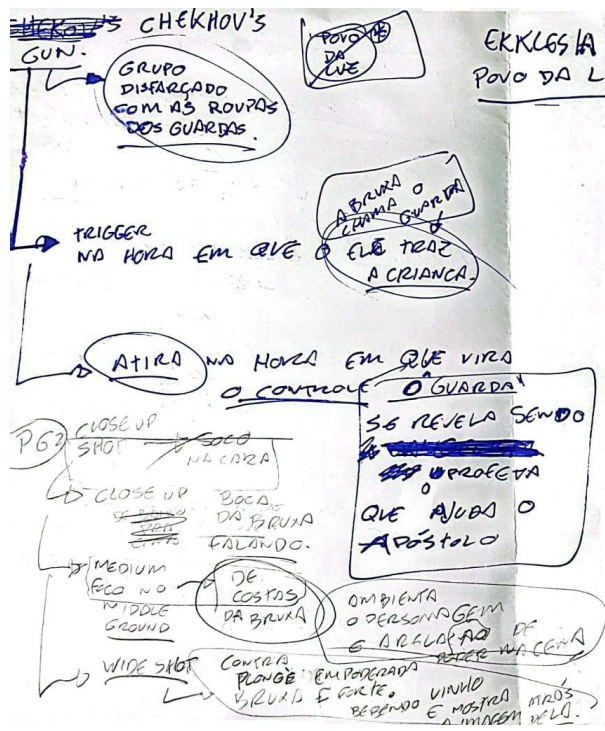 CHEKHOV'S
GUN.
POVO DE
DA
LUZ
EKKLESIA
POVO DA L
GRUPO
DISFARÇADO
COM AS ROUPAS
DOS GUARDAS.
A BRUXA
CHAMA O
GUARDA
TRIGGER
NA HORA EM QUE O ELE TRAZ
A CRIANÇA.
ATIRA NA HORA EM QUE VIRA
O CONTROLE O "GUARDA"
SE REVELA SENDO
O PROFETA
QUE AJUDA O
APÓSTOLO
PG2
CLOSE UP
SHOT SOCO
NA CARA
CLOSE UP BOCA
DA BRUXA
FALANDO.
MEDIUM
FOCO NO
MIDDLE
GROUND
DE
COSTAS
DA BRUXA
AMBIENTA
O PERSONAGEM
E A RELAÇÃO DE
PODER NA CENA
WIDE SHOT CONTRA
PLONGÈ EMPODERADA
BRUXA E FORTE.
BEBENDO VINHO
E MOSTRA ATRÁS
A IMAGEM DELA.